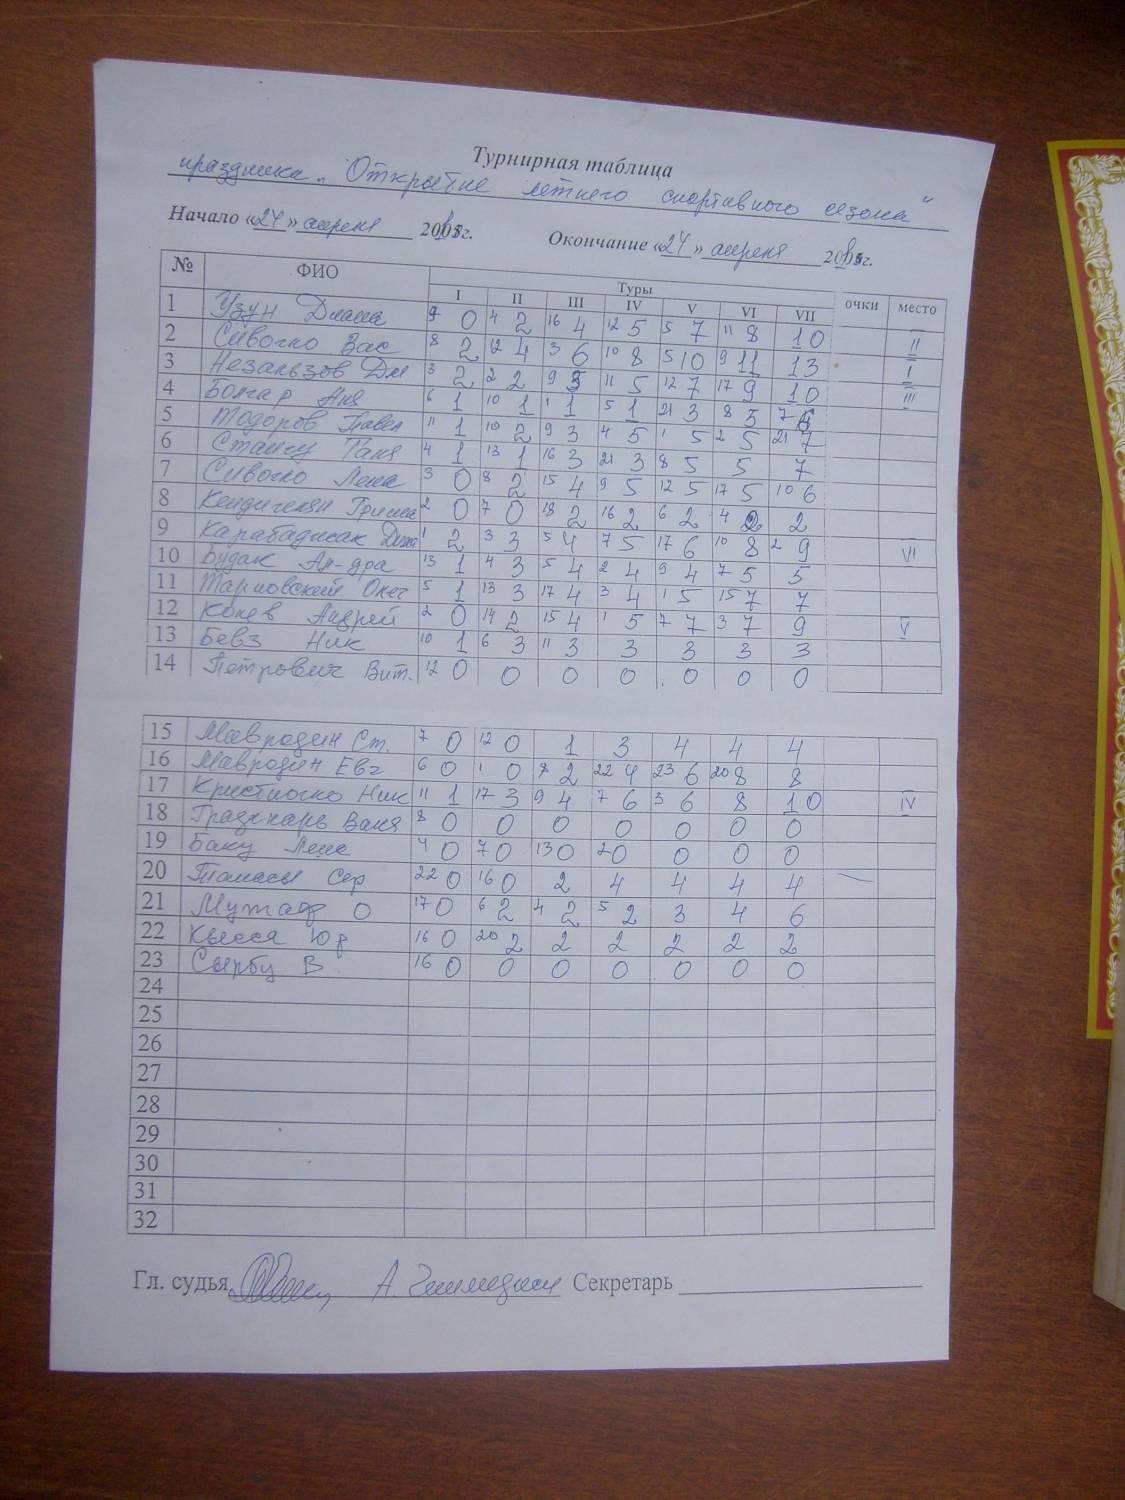 Турнирная таблица
праздника „Открытие летнего спортивного сезона"
Начало «24» апреля
Окончание «24» апреля
№ ФИО Туры очки место
I II III IV V VI VII
1 Узун Диана 9 0 4 2 16 4 12 5 5 7 11 8 10 II
2 Сивочко Вас 8 2 12 4 3 6 10 8 5 10 9 11 13 I
3 Незальзов Дм 3 2 2 2 9 3 11 5 12 7 17 9 10 III
4 Болгар Аня 6 1 10 1 1 1 5 1 21 3 8 5 7 6
5 Тодоров Павел 11 1 10 2 9 3 4 5 1 5 2 5 21 7
6 Стангу Таня 4 1 13 1 16 3 21 3 8 5 5 7
7 Сивочко Лена 3 0 8 2 15 4 9 5 12 5 17 5 10 6
8 Кендигелян Гриша 2 0 7 0 18 2 16 2 6 2 4 2 2
9 Карабаджак Дима 1 2 3 3 5 4 7 5 17 6 10 8 2 9 VI
10 Будак Ал-дра 13 1 4 3 5 4 2 4 9 4 7 5 5
11 Тарновский Олег 5 1 13 3 17 4 3 4 1 5 15 7 7
12 Конев Андрей 2 0 14 2 15 4 1 5 7 7 3 7 9 V
13 Бевз Ник 10 1 6 3 11 3 3 3 3 3
14 Петрович Вит. 12 0 0 0 0 0 0 0
15 Мавродин Ст. 7 0 12 0 1 3 4 4 4
16 Мавродин Евг 6 0 1 0 8 2 22 4 23 6 20 8 8
17 Кристиогло Ник 11 1 17 3 9 4 7 6 3 6 8 10 IV
18 Граденарь Ваня 8 0 0 0 0 0 0 0
19 Баку Лена 4 0 7 0 13 0 20 0 0 0
20 Сер 22 0 16 0 2 4 4 4 4
21 Мутаф О 17 0 6 2 4 2 5 2 3 4 6
22 Квеся Юр 16 0 20 2 2 2 2 2 2
23 Сырбу В 16 0 0 0 0 0 0 0
24
25
26
27
28
29
30
31
32
Гл. судья А. Секретарь